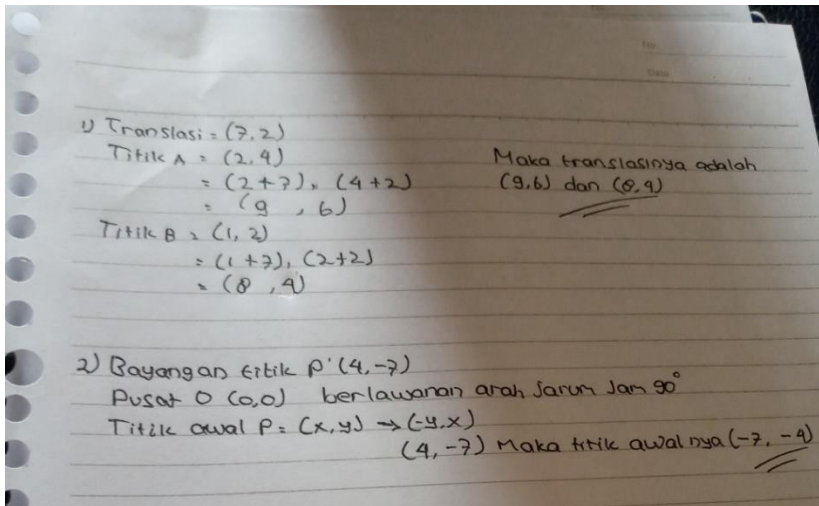 No.
Date
1) Translasi = (7,2)
Titik A = (2,4)
= (2+7), (4+2)
= (9 , 6)
Titik B = (1, 2)
= (1 +7), (2+2)
= (8 , 4)
Maka translasinya adalah
(9,6) dan (8,4)
2) Bayangan titik P'(4,-7)
Pusat O (0,0) berlawanan arah Jarum Jam 90°
Titik awal P = (x,y) → (-y,x)
(4, -7) Maka titik awalnya (-7, -4)